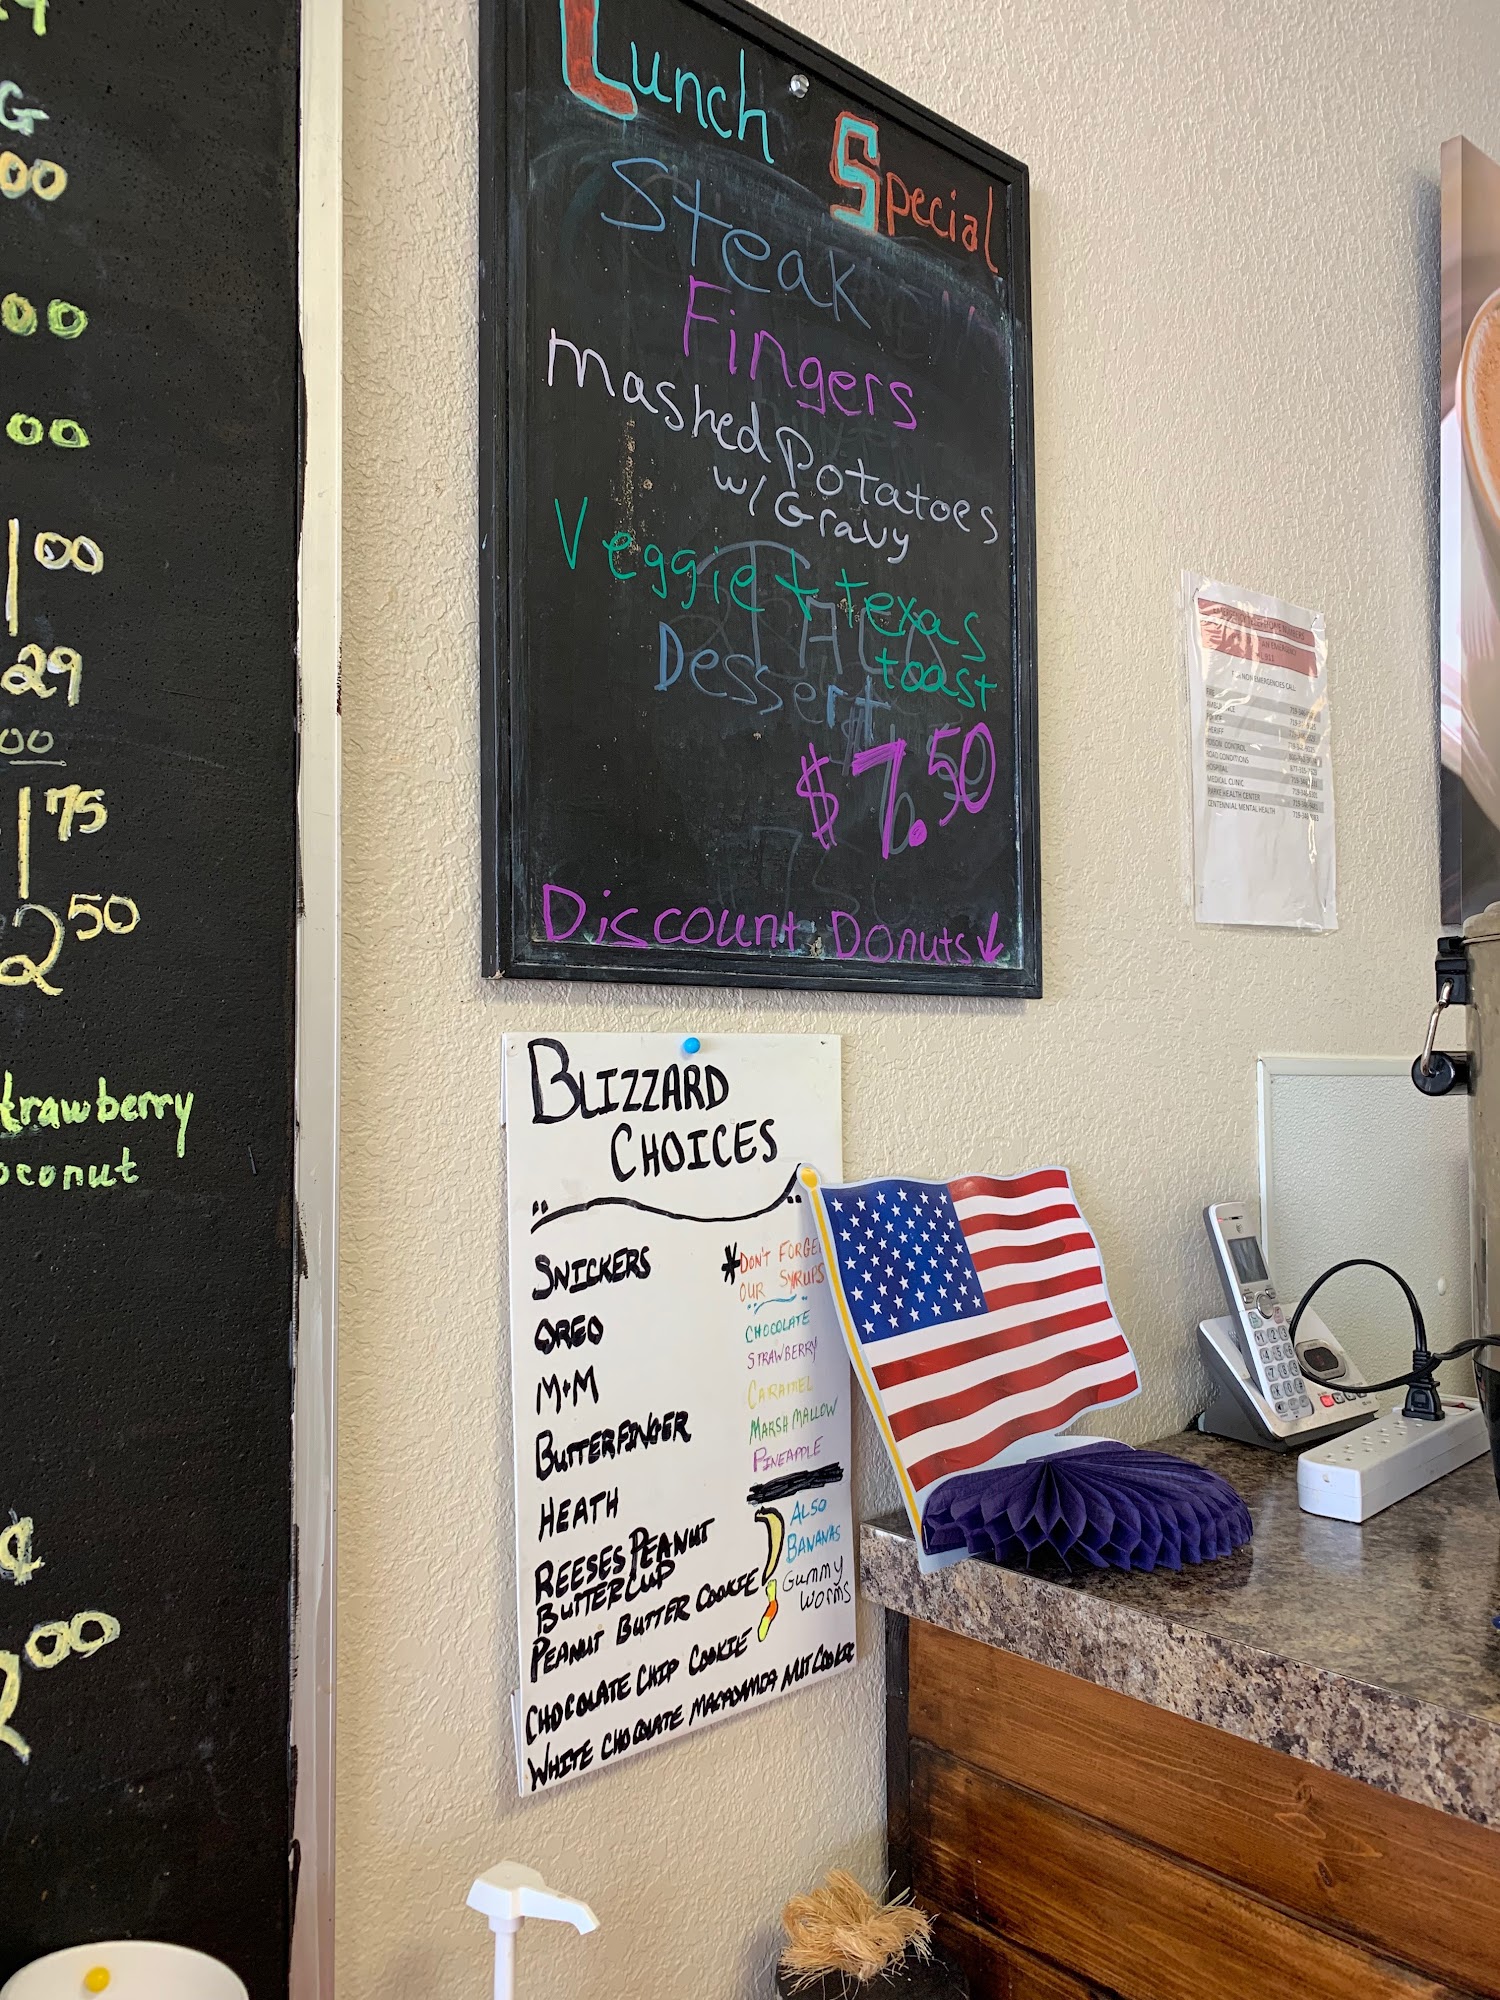 G
00
00
00
1 00
29
00
1 75
2 50
trawberry
oconut
¢
2 00
Lunch Special
Steak
Fingers
Mashed Potatoes
w/ Gravy
Veggie + texas
toast
Dessert
$7.50
Discount Donuts ↓
BLIZZARD
CHOICES
SNICKERS
OREO
M+M
BUTTERFINGER
HEATH
REESES PEANUT
BUTTER CUP
PEANUT BUTTER COOKIE
CHOCOLATE CHIP COOKIE
WHITE CHOCOLATE MACADAMIA NUT COOKIE
*DON'T FORGE
OUR SYRUPS
CHOCOLATE
STRAWBERRY
CARAMEL
MARSHMALLOW
PINEAPPLE
ALSO
BANANAS
GUMMY
WORMS
AN EMERGENCY
FOR NON EMERGENCIES CALL
SHERIFF
POISON CONTROL
ROAD CONDITIONS
HOSPITAL
MEDICAL CLINIC
PARKE HEALTH CENTER
CENTENNIAL MENTAL HEALTH